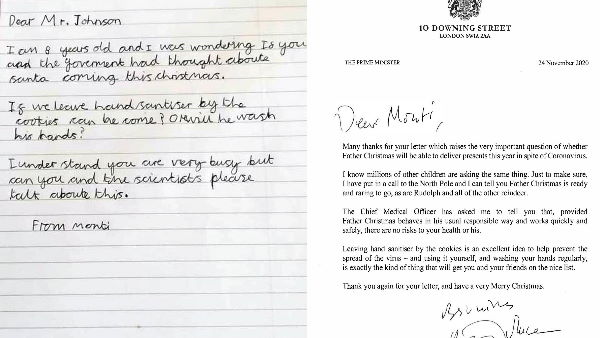 Dear Mr. Johnson
I am 8 years old and I was wondering Is you
and the goverment had thought aboute
santa coming this christmas.
If we leave hand santiser by the
cookies can he come? Or will he wash
his hands?
I under stand you are very busy but
can you and the scientists please
talk aboute this.
From monti
10 DOWNING STREET
LONDON SW1A 2AA
THE PRIME MINISTER
24 November 2020
Dear Monti,
Many thanks for your letter which raises the very important question of whether
Father Christmas will be able to deliver presents this year in spite of Coronavirus.
I know millions of other children are asking the same thing. Just to make sure,
I have put in a call to the North Pole and I can tell you Father Christmas is ready
and raring to go, as are Rudolph and all of the other reindeer.
The Chief Medical Officer has asked me to tell you that, provided
Father Christmas behaves in his usual responsible way and works quickly and
safely, there are no risks to your health or his.
Leaving hand sanitiser by the cookies is an excellent idea to help prevent the
spread of the virus – and using it yourself, and washing your hands regularly,
is exactly the kind of thing that will get you and your friends on the nice list.
Thank you again for your letter, and have a very Merry Christmas.